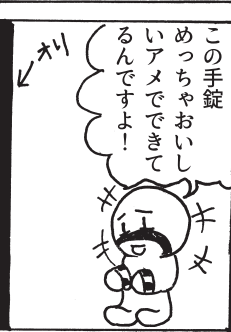 この手錠
めっちゃおいし
いアメでできて
るんですよ！
オリ